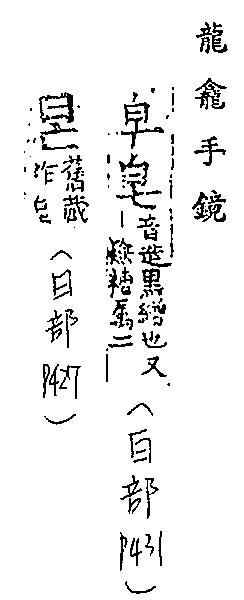 龍龕手鏡
皁皂音造黑繒也又
（白部
P431）
舊藏
作皂
（日部
P427）